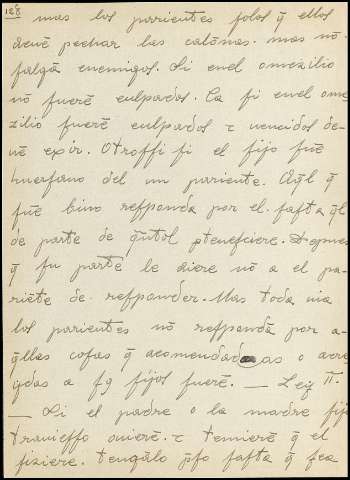 128
mas los parientes solos q̃ ellos
devẽ pechar las calõnas. mas nõ
salgã enemigos. Si enel omezilio
nõ fuerẽ culpados. Ca si enel ome
zilio fuerẽ culpados τ vencidos de-
vẽ exir. Otrossi si el fijo fuẽ
huerfano del un pariente. Aq̃l q̃
fuẽ bivo responda por el. fasta q̃l
de parte de q̃ntol pteneſciere. Depues
q̃ su parte le diere nõ a el pa-
riẽte de responder. Mas toda via
los parientes nõ respondã por a-
q̃llas cosas q̃ acomendadas o acre
ydas a sy fijos fuerẽ. — Ley II.
— Si el padre o la madre fijo
travieſſo ovierẽ. τ temierẽ q̃ el
fiziere. tengãlo pſo fasta q̃ sea